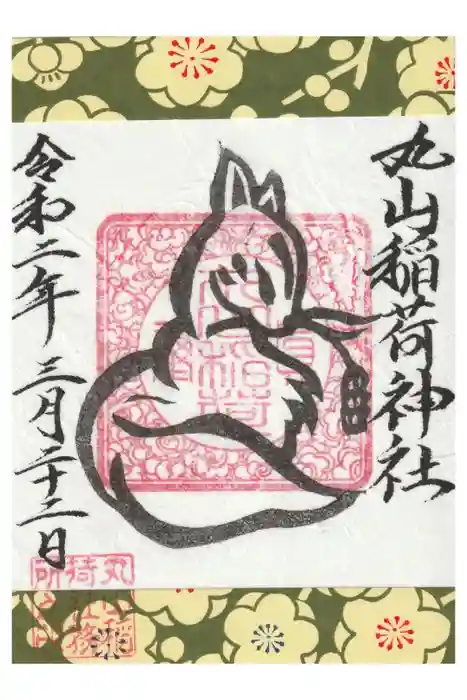 丸山稲荷神社
令和二年三月二十二日